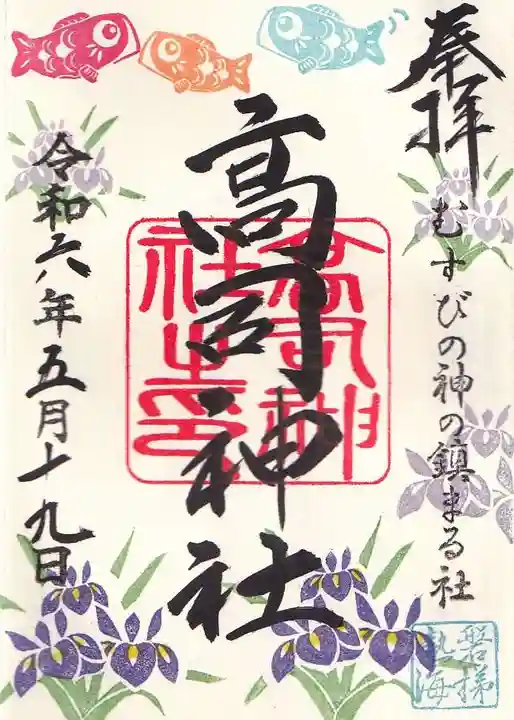 奉拝
むすびの神の鎮まる社
高司神社
高司神社之印
令和六年五月十九日
磐梯熱海